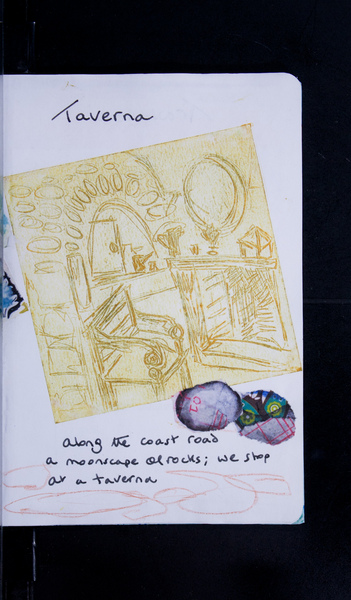 Taverna
along the coast road
a moonscape of rocks; we stop
at a taverna